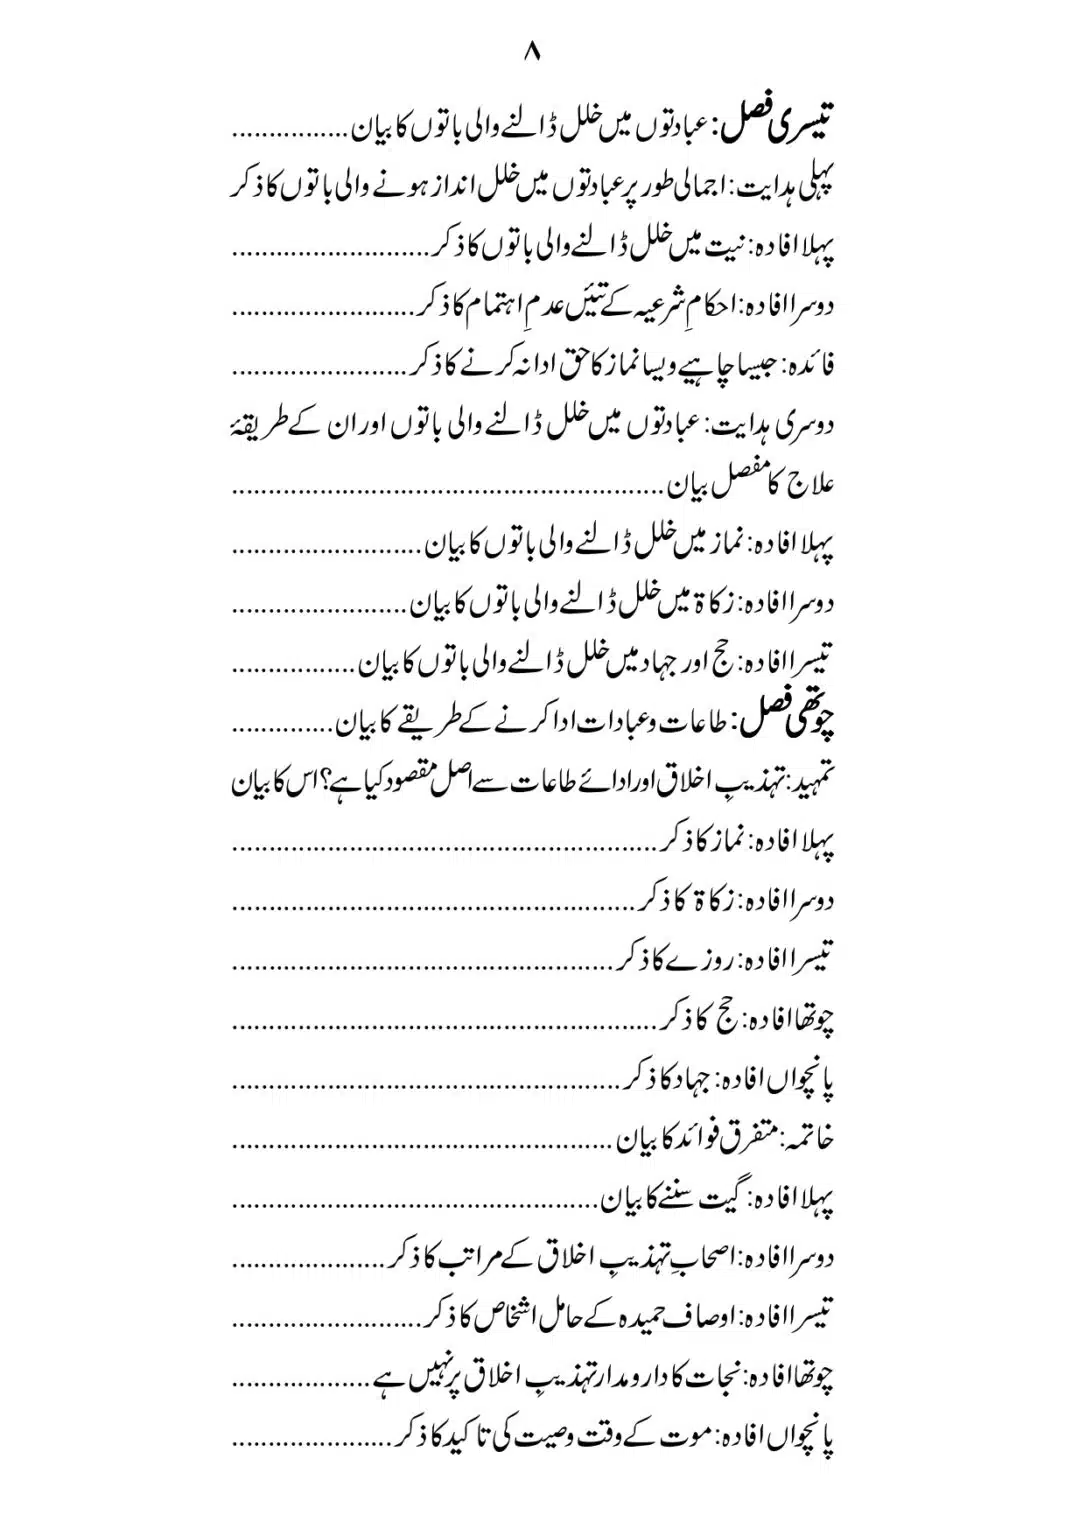 ۸
تیسری فصل: عبادتوں میں خلل ڈالنے والی باتوں کا بیان................
پہلی ہدایت: اجمالی طور پر عبادتوں میں خلل انداز ہونے والی باتوں کا ذکر
پہلا افادہ: نیت میں خلل ڈالنے والی باتوں کا ذکر...........................
دوسرا افادہ: احکامِ شرعیہ کے تئیں عدمِ اہتمام کا ذکر.........................
فائدہ: جیسا چاہیے ویسا نماز کا حق ادا نہ کرنے کا ذکر........................
دوسری ہدایت: عبادتوں میں خلل ڈالنے والی باتوں اور ان کے طریقۂ
علاج کا مفصل بیان...........................................................
پہلا افادہ: نماز میں خلل ڈالنے والی باتوں کا بیان..........................
دوسرا افادہ: زکاۃ میں خلل ڈالنے والی باتوں کا بیان........................
تیسرا افادہ: حج اور جہاد میں خلل ڈالنے والی باتوں کا بیان.................
چوتھی فصل: طاعات و عبادات ادا کرنے کے طریقے کا بیان..............
تمہید: تہذیبِ اخلاق اور ادائے طاعات سے اصل مقصود کیا ہے؟ اس کا بیان
پہلا افادہ: نماز کا ذکر..........................................................
دوسرا افادہ: زکاۃ کا ذکر.......................................................
تیسرا افادہ: روزے کا ذکر....................................................
چوتھا افادہ: حج کا ذکر..........................................................
پانچواں افادہ: جہاد کا ذکر.....................................................
خاتمہ: متفرق فوائد کا بیان....................................................
پہلا افادہ: گیت سننے کا بیان..................................................
دوسرا افادہ: اصحابِ تہذیبِ اخلاق کے مراتب کا ذکر.....................
تیسرا افادہ: اوصاف حمیدہ کے حامل اشخاص کا ذکر..........................
چوتھا افادہ: نجات کا دار و مدار تہذیبِ اخلاق پر نہیں ہے...................
پانچواں افادہ: موت کے وقت وصیت کی تاکید کا ذکر......................